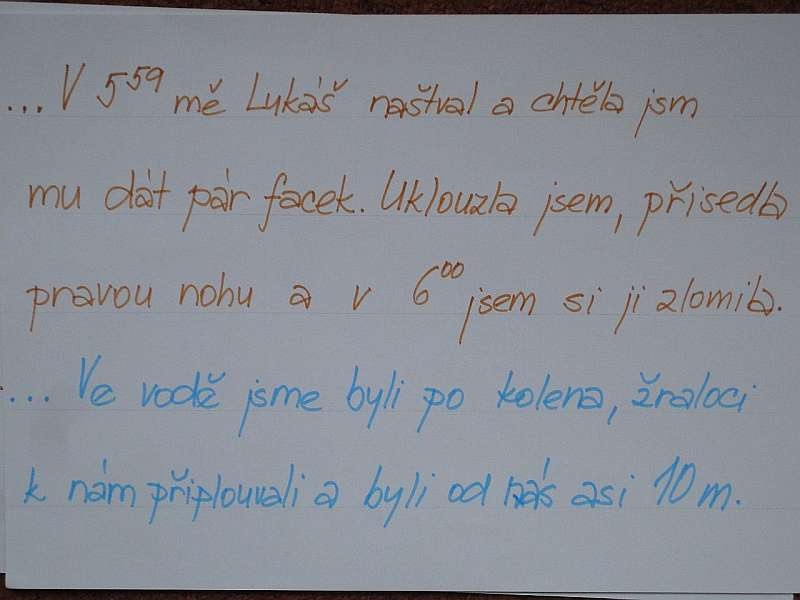 ... V 5⁵⁹ mě Lukáš naštval a chtěla jsm
mu dát pár facek. Uklouzla jsem, přisedla
pravou nohu a v 6⁰⁰ jsem si ji zlomila.
... Ve vodě jsme byli po kolena, žraloci
k nám připlouvali a byli od nás asi 10 m.